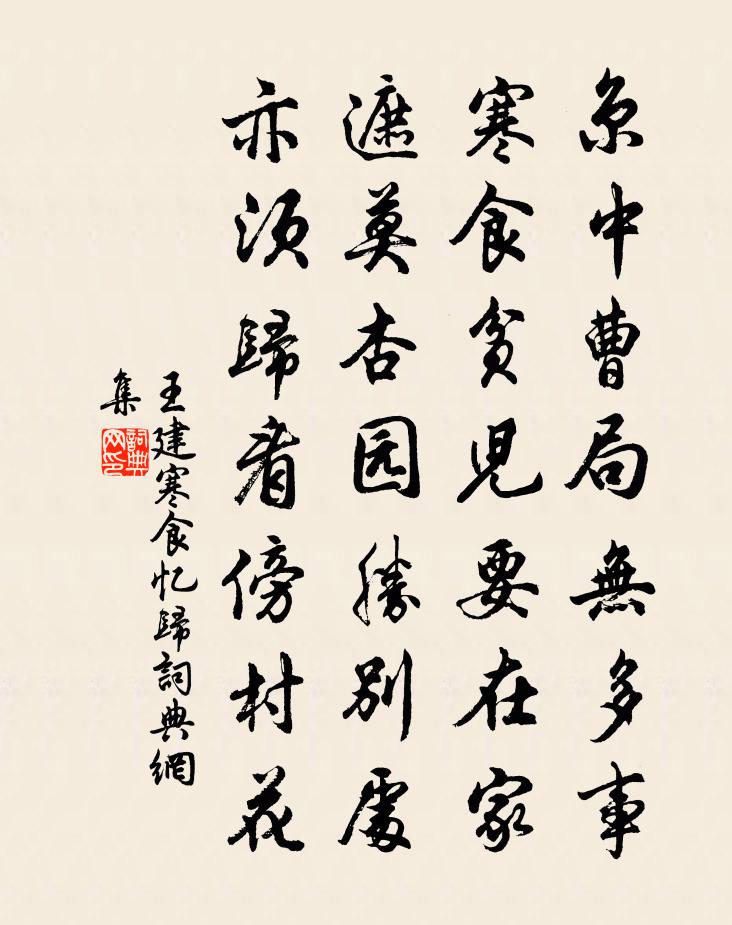 京中曹局無多事
寒食貧兒要在家
遮莫杏园勝別處
亦須歸看傍村花
王建寒食忆歸詞典網
集
詞典網印